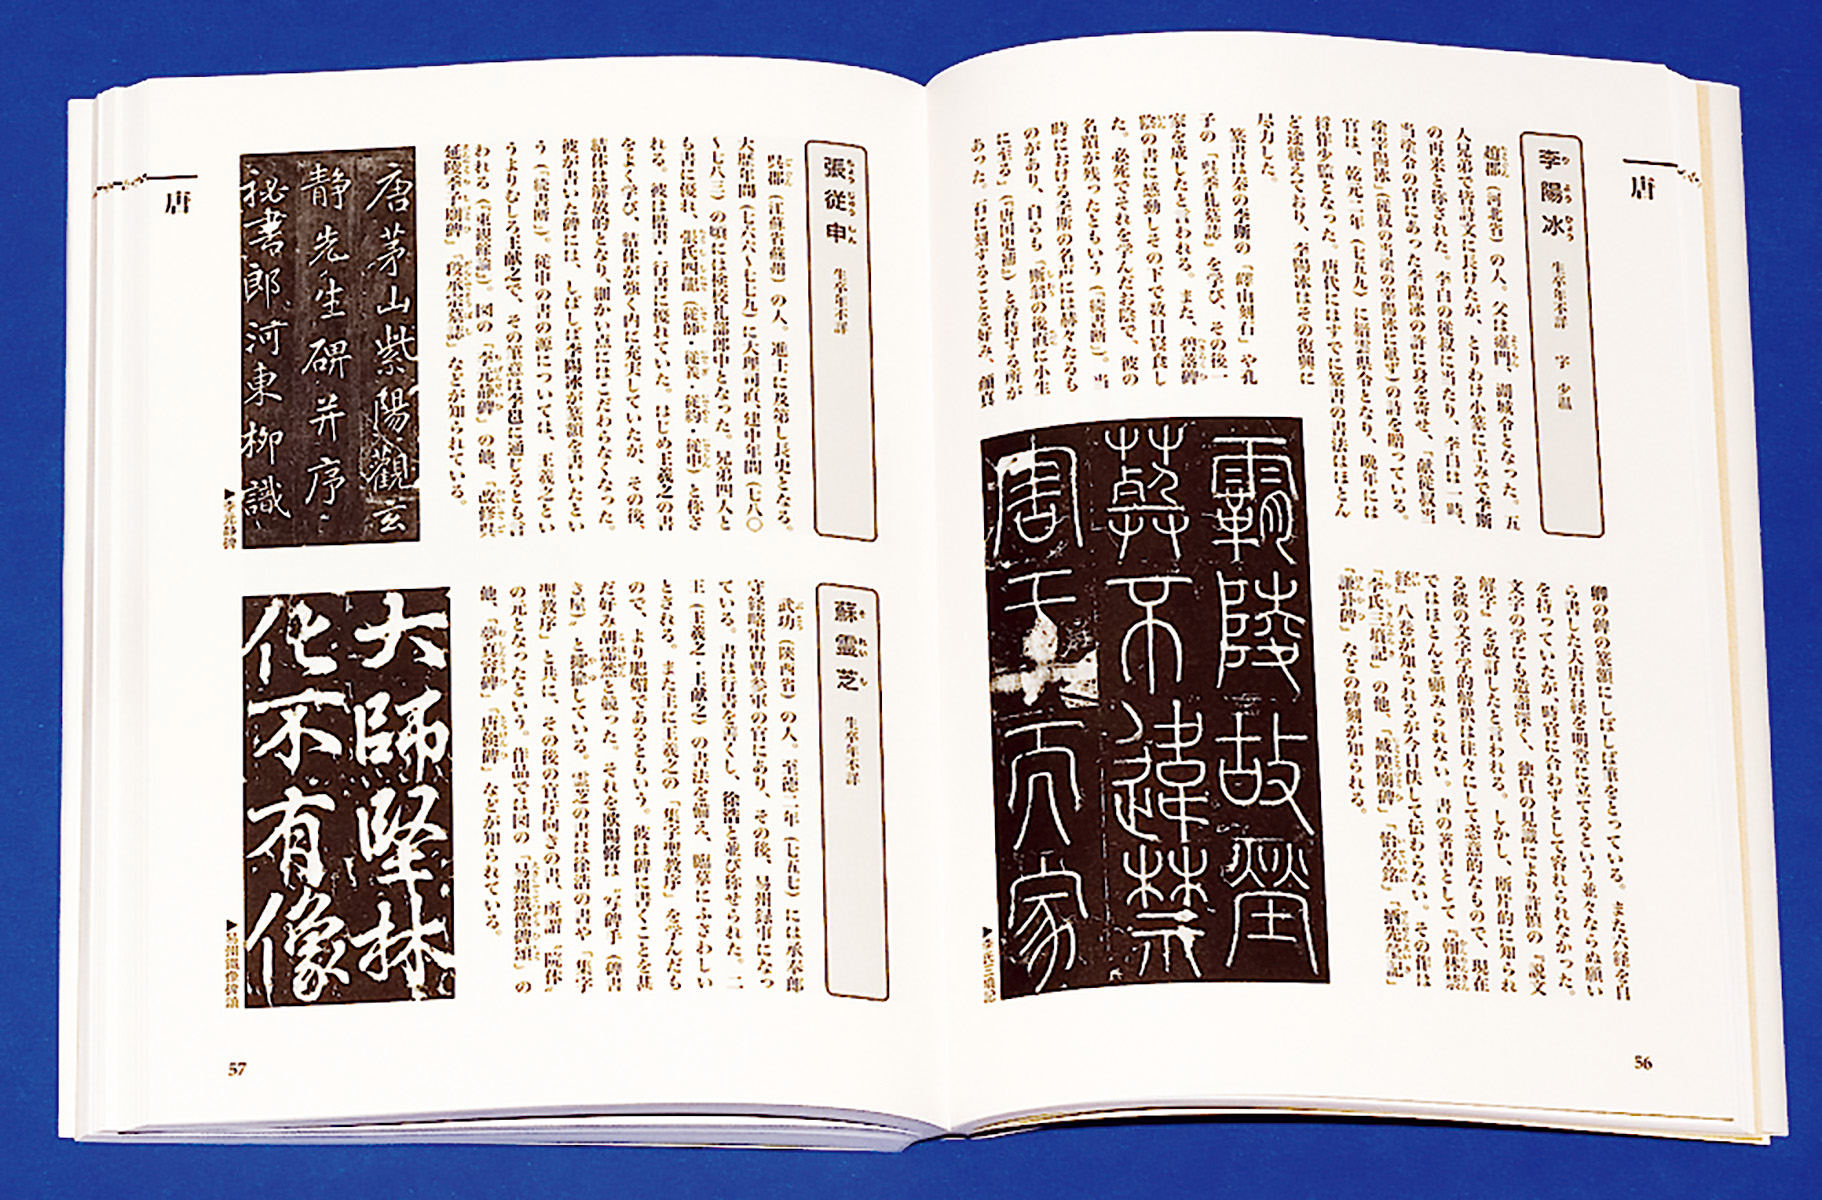 唐
李陽冰 生卒年不詳 字 少温
趙郡(河北省)の人。父は雍門、湖城令となった。五
人兄弟で皆詩文に長けたが、とりわけ小篆に工みで李斯
の再来と称された。李白の従叔に当たり、李白は一時、
当塗令の官にあった李陽冰の許に身を寄せ、「献従叔当
塗宰陽冰」(従叔の当塗の宰陽冰に献ず)の詩を贈っている。
官は、乾元二年(七五九)に縉雲県令となり、晩年には
将作少監となった。唐代にはすでに篆書の書法はほとん
ど途絶えており、李陽冰はその復興に
尽力した。
篆書は秦の李斯の「嶧山刻石」や孔
子の「呉季札墓誌」を学び、その後一
家を成したと言われる。また、碧落碑
の書に感動しその下で数日寝食し
た。必死でそれを学んだお陰で、彼の
名蹟が残ったともいう(「続書断」)。当
時における李斯の名声には赫々たるも
のがあり、自らも「斯翁の後直に小生
に至る」(「唐国史補」)と矜持する所が
あった。石に刻することを好み、顔真
卿の碑の篆額にしばしば筆をとっている。また六経を自
ら書した大唐石経を明堂に立てるという並々ならぬ願い
を持っていたが、時宜に合わずとして容れられなかった。
文字の学にも造詣深く、独自の見識により許慎の『説文
解字』を改訂したと言われる。しかし、断片的に知られ
る彼の文字学的解釈は往々にして恣意的なもので、現在
ではほとんど顧みられない。書の著書として『翰林禁
経』八巻が知られるが今日佚して伝わらない。その作は
「李氏三墳記」の他、「城隍廟碑」「怡亭銘」「栖先塋記」
「謙卦碑」などの碑刻が知られる。
霸陵故塋
蓺不違禁
害于而家
56
唐
張従申 生卒年不詳
呉郡(江蘇省蘇州)の人。進士に及第し長史となる。
大歴年間(七六六〜七七九)に大理司直、建中年間(七八〇
〜七八三)の頃には検校礼部郎中となった。兄弟四人と
も書に優れ、張氏四龍(従師・従義・従約・従申)と称さ
れる。彼は楷書・行書に優れていた。はじめ王羲之の書
をよく学び、結体が強く内に充実していたが、その後、
結体は解放的となり、細かい点にはこだわらなくなった。
彼が書いた碑には、しばしば李陽冰が篆額を書いたとい
う(「続書断」)。従申の書の源については、王羲之とい
うよりむしろ王献之で、その筆意は李邕に通じるとも言
われる(「東観餘論」)。図の「李元静碑」の他、「故修呉
延陵季子廟碑」「段承宗墓誌」などが知られている。
唐茅山紫陽觀玄
静先生碑并序
祕書郎河東柳識
▶李元静碑
蘇霊芝 生卒年不詳
武功(陝西省)の人。至徳二年(七五七)には承奉郎
守経略軍冑曹参軍の官にあり、その後、易州録事になっ
ている。書は行書を善くし、徐浩と並び称せられた。二
王(王羲之・王献之)の書法を備え、臨摹にふさわしい
とされる。また主に王羲之の「集字聖教序」を学んだも
ので、より肥媚であるともいう。彼は碑に書くことを甚
だ好み胡霈然と競った。それを欧陽脩は「写碑手(碑書
き屋)」と揶揄している。霊芝の書は徐浩の書や「集字
聖教序」と共に、その後の官庁向きの書、所謂「院体」
の元となったという。作品では図の「易州鐵像碑頌」の
他、「夢真容碑」「唐儉碑」などが知られている。
大師堅林
化不有像
▶易州鐵像碑頌
57